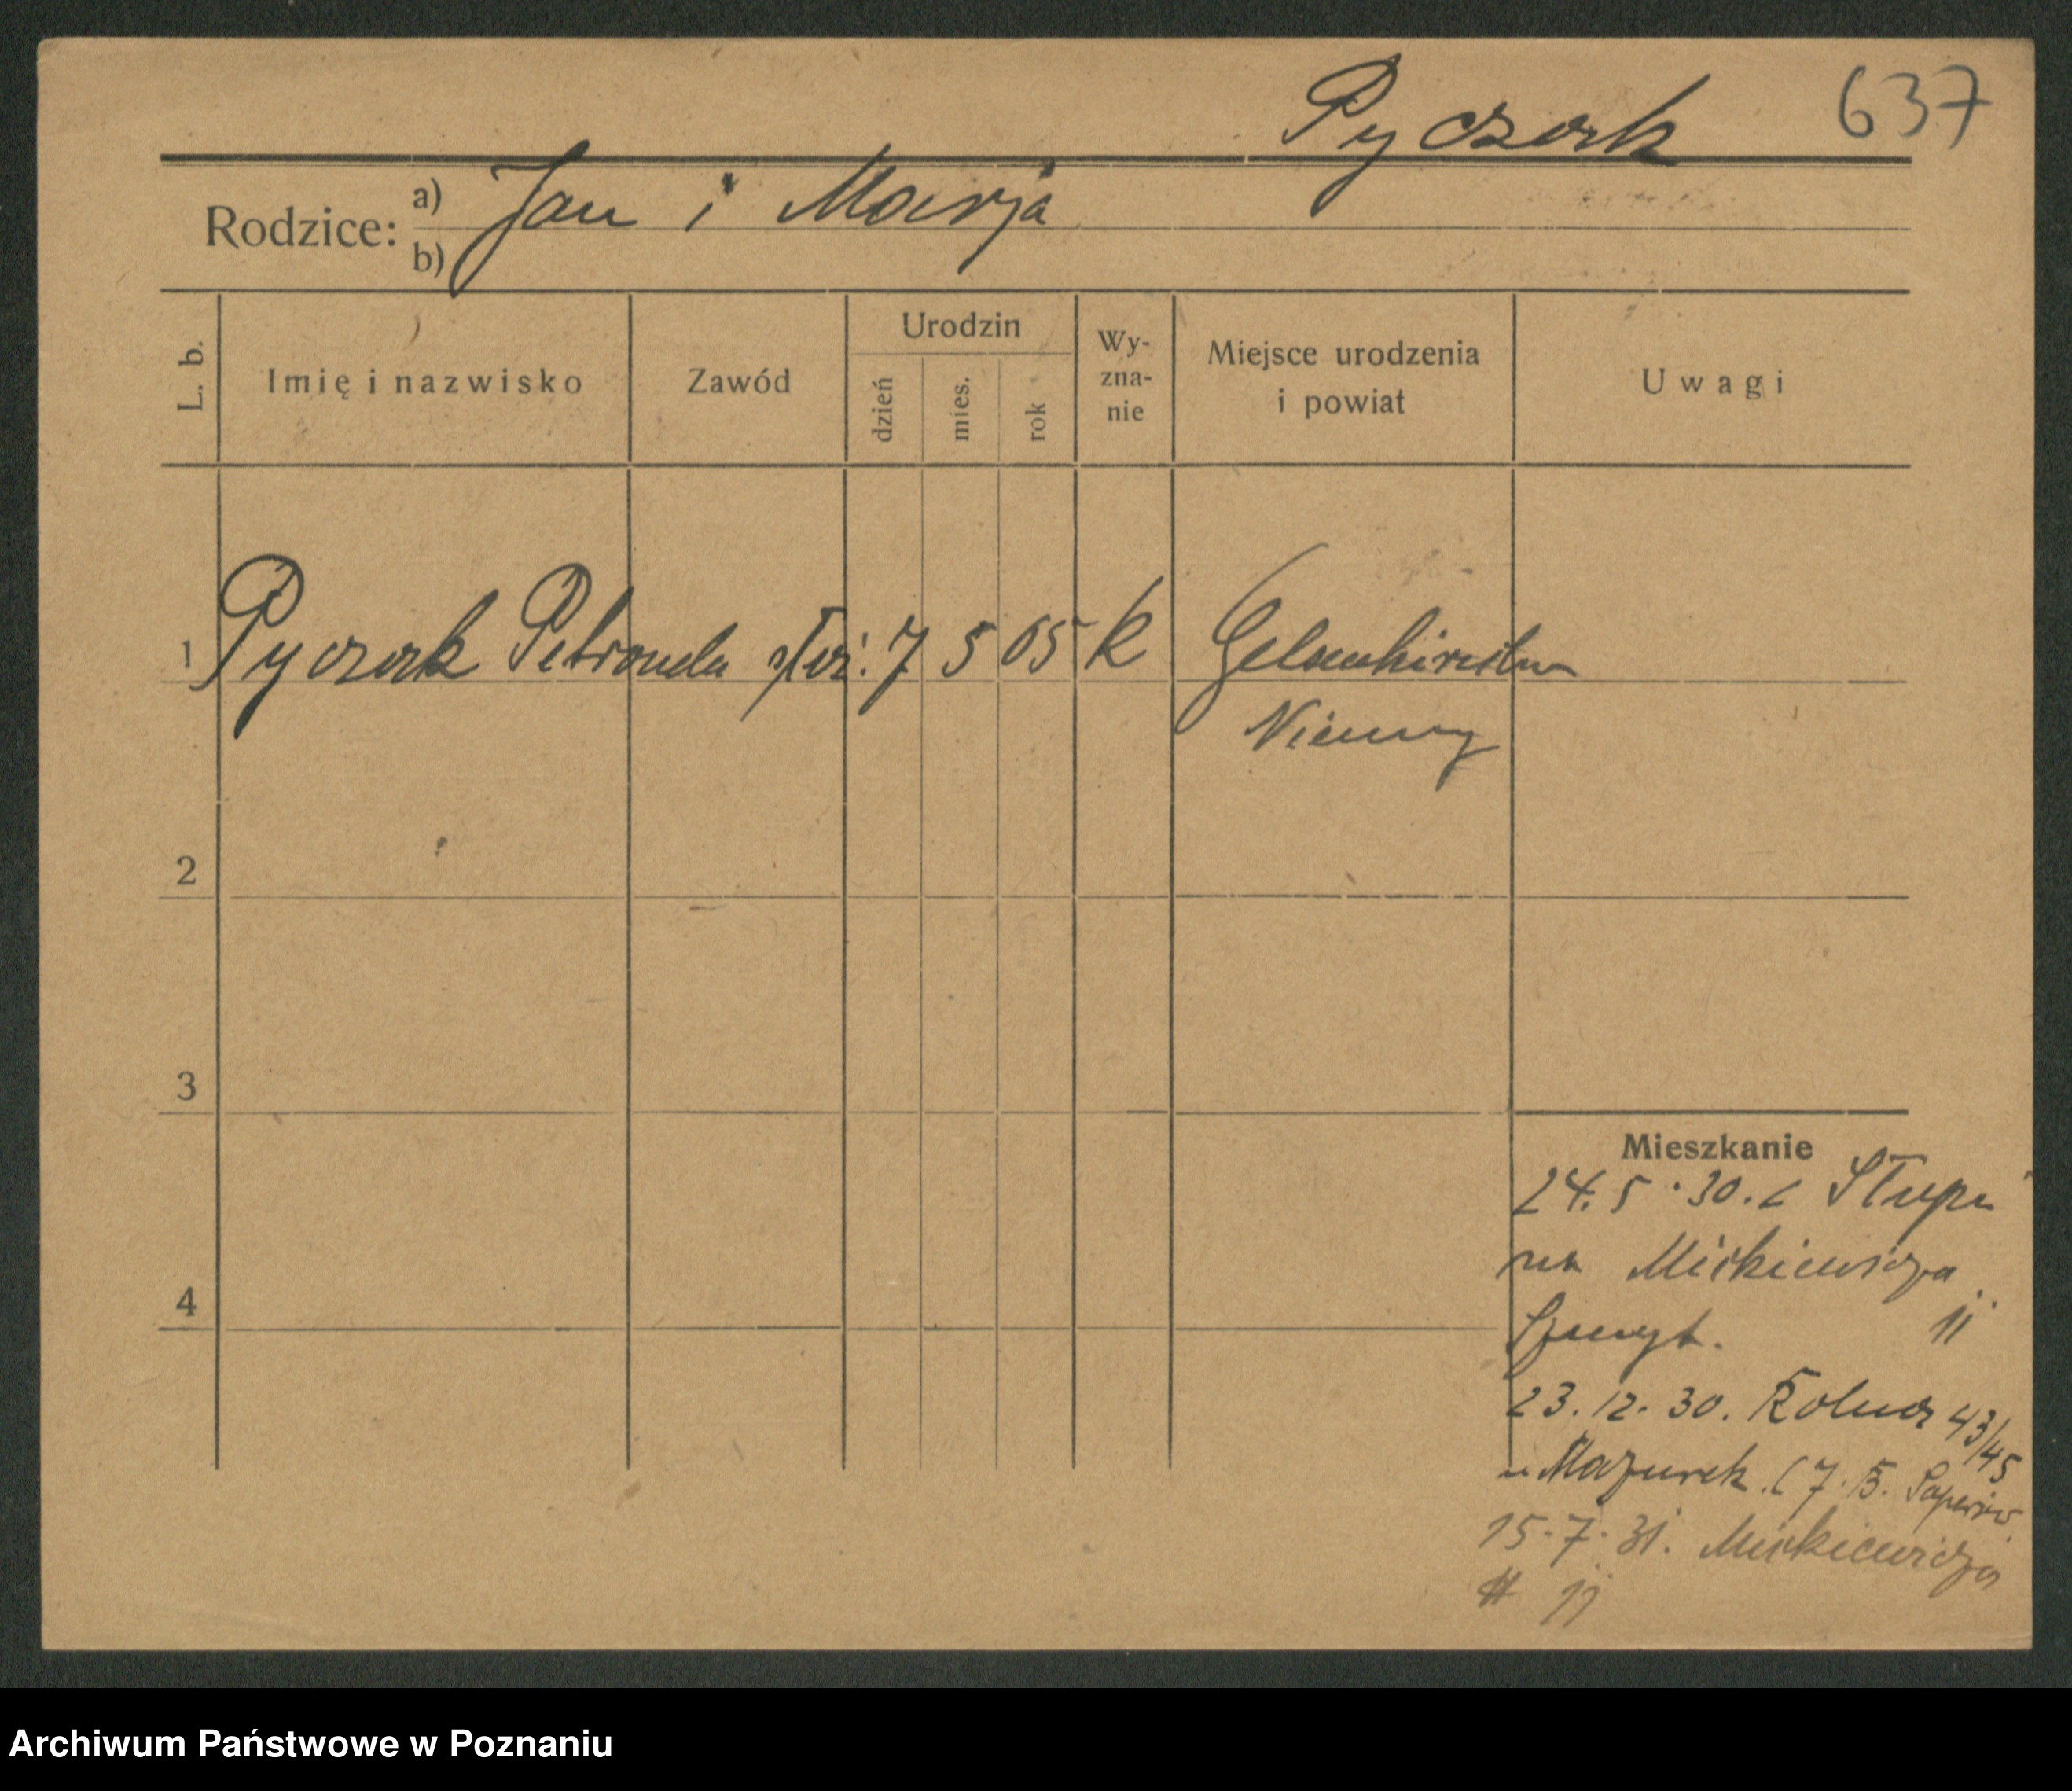 Pyczak 637
Rodzice: a) Jan i Marja
b)
L. b. Imię i nazwisko Zawód Urodzin dzień mies. rok Wy-zna-nie Miejsce urodzenia i powiat Uwagi
1 Pyczak Petronela służ. 7 5 05 k Gelsenkirchen
Niemcy
2
3
Mieszkanie
24. 5. 30. z Słupi
na Mickiewicza
4
11
23. 12. 30. Rolna 43/45
u Mazurek. (7. B. Saperów.
15. 7. 31. Mickiewicza
11
Archiwum Państwowe w Poznaniu